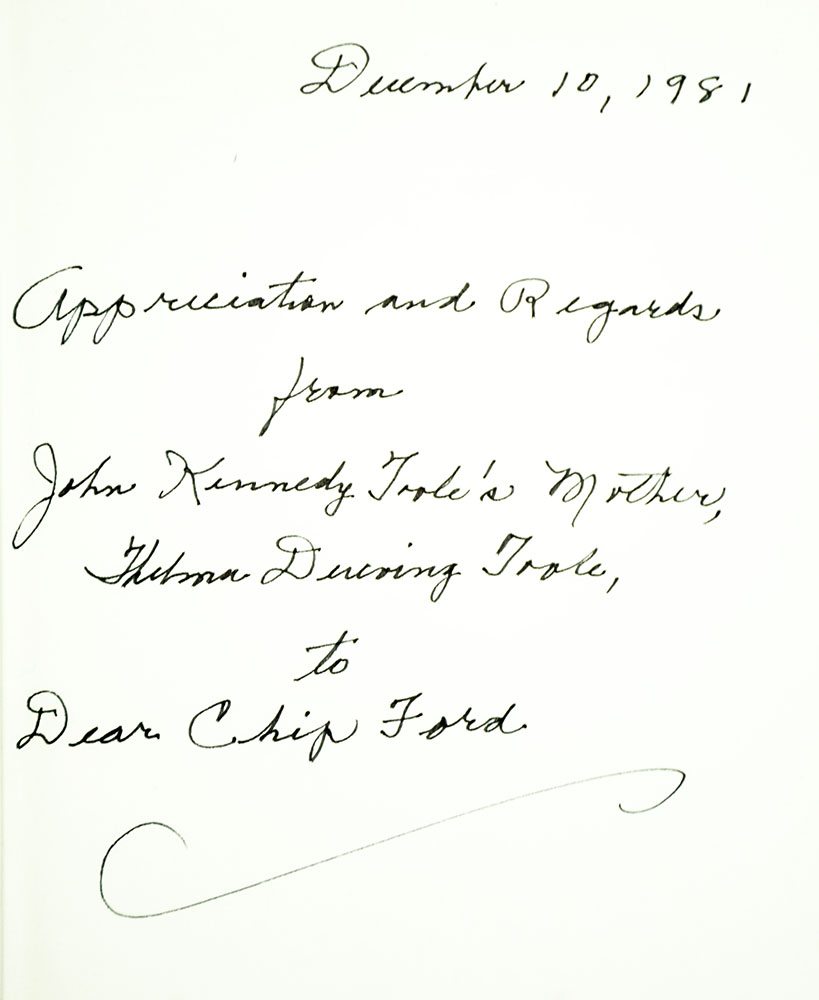 December 10, 1981
Appreciation and Regards
from
John Kennedy Toole's Mother,
Thelma Ducoing Toole,
to
Dear Chip Ford